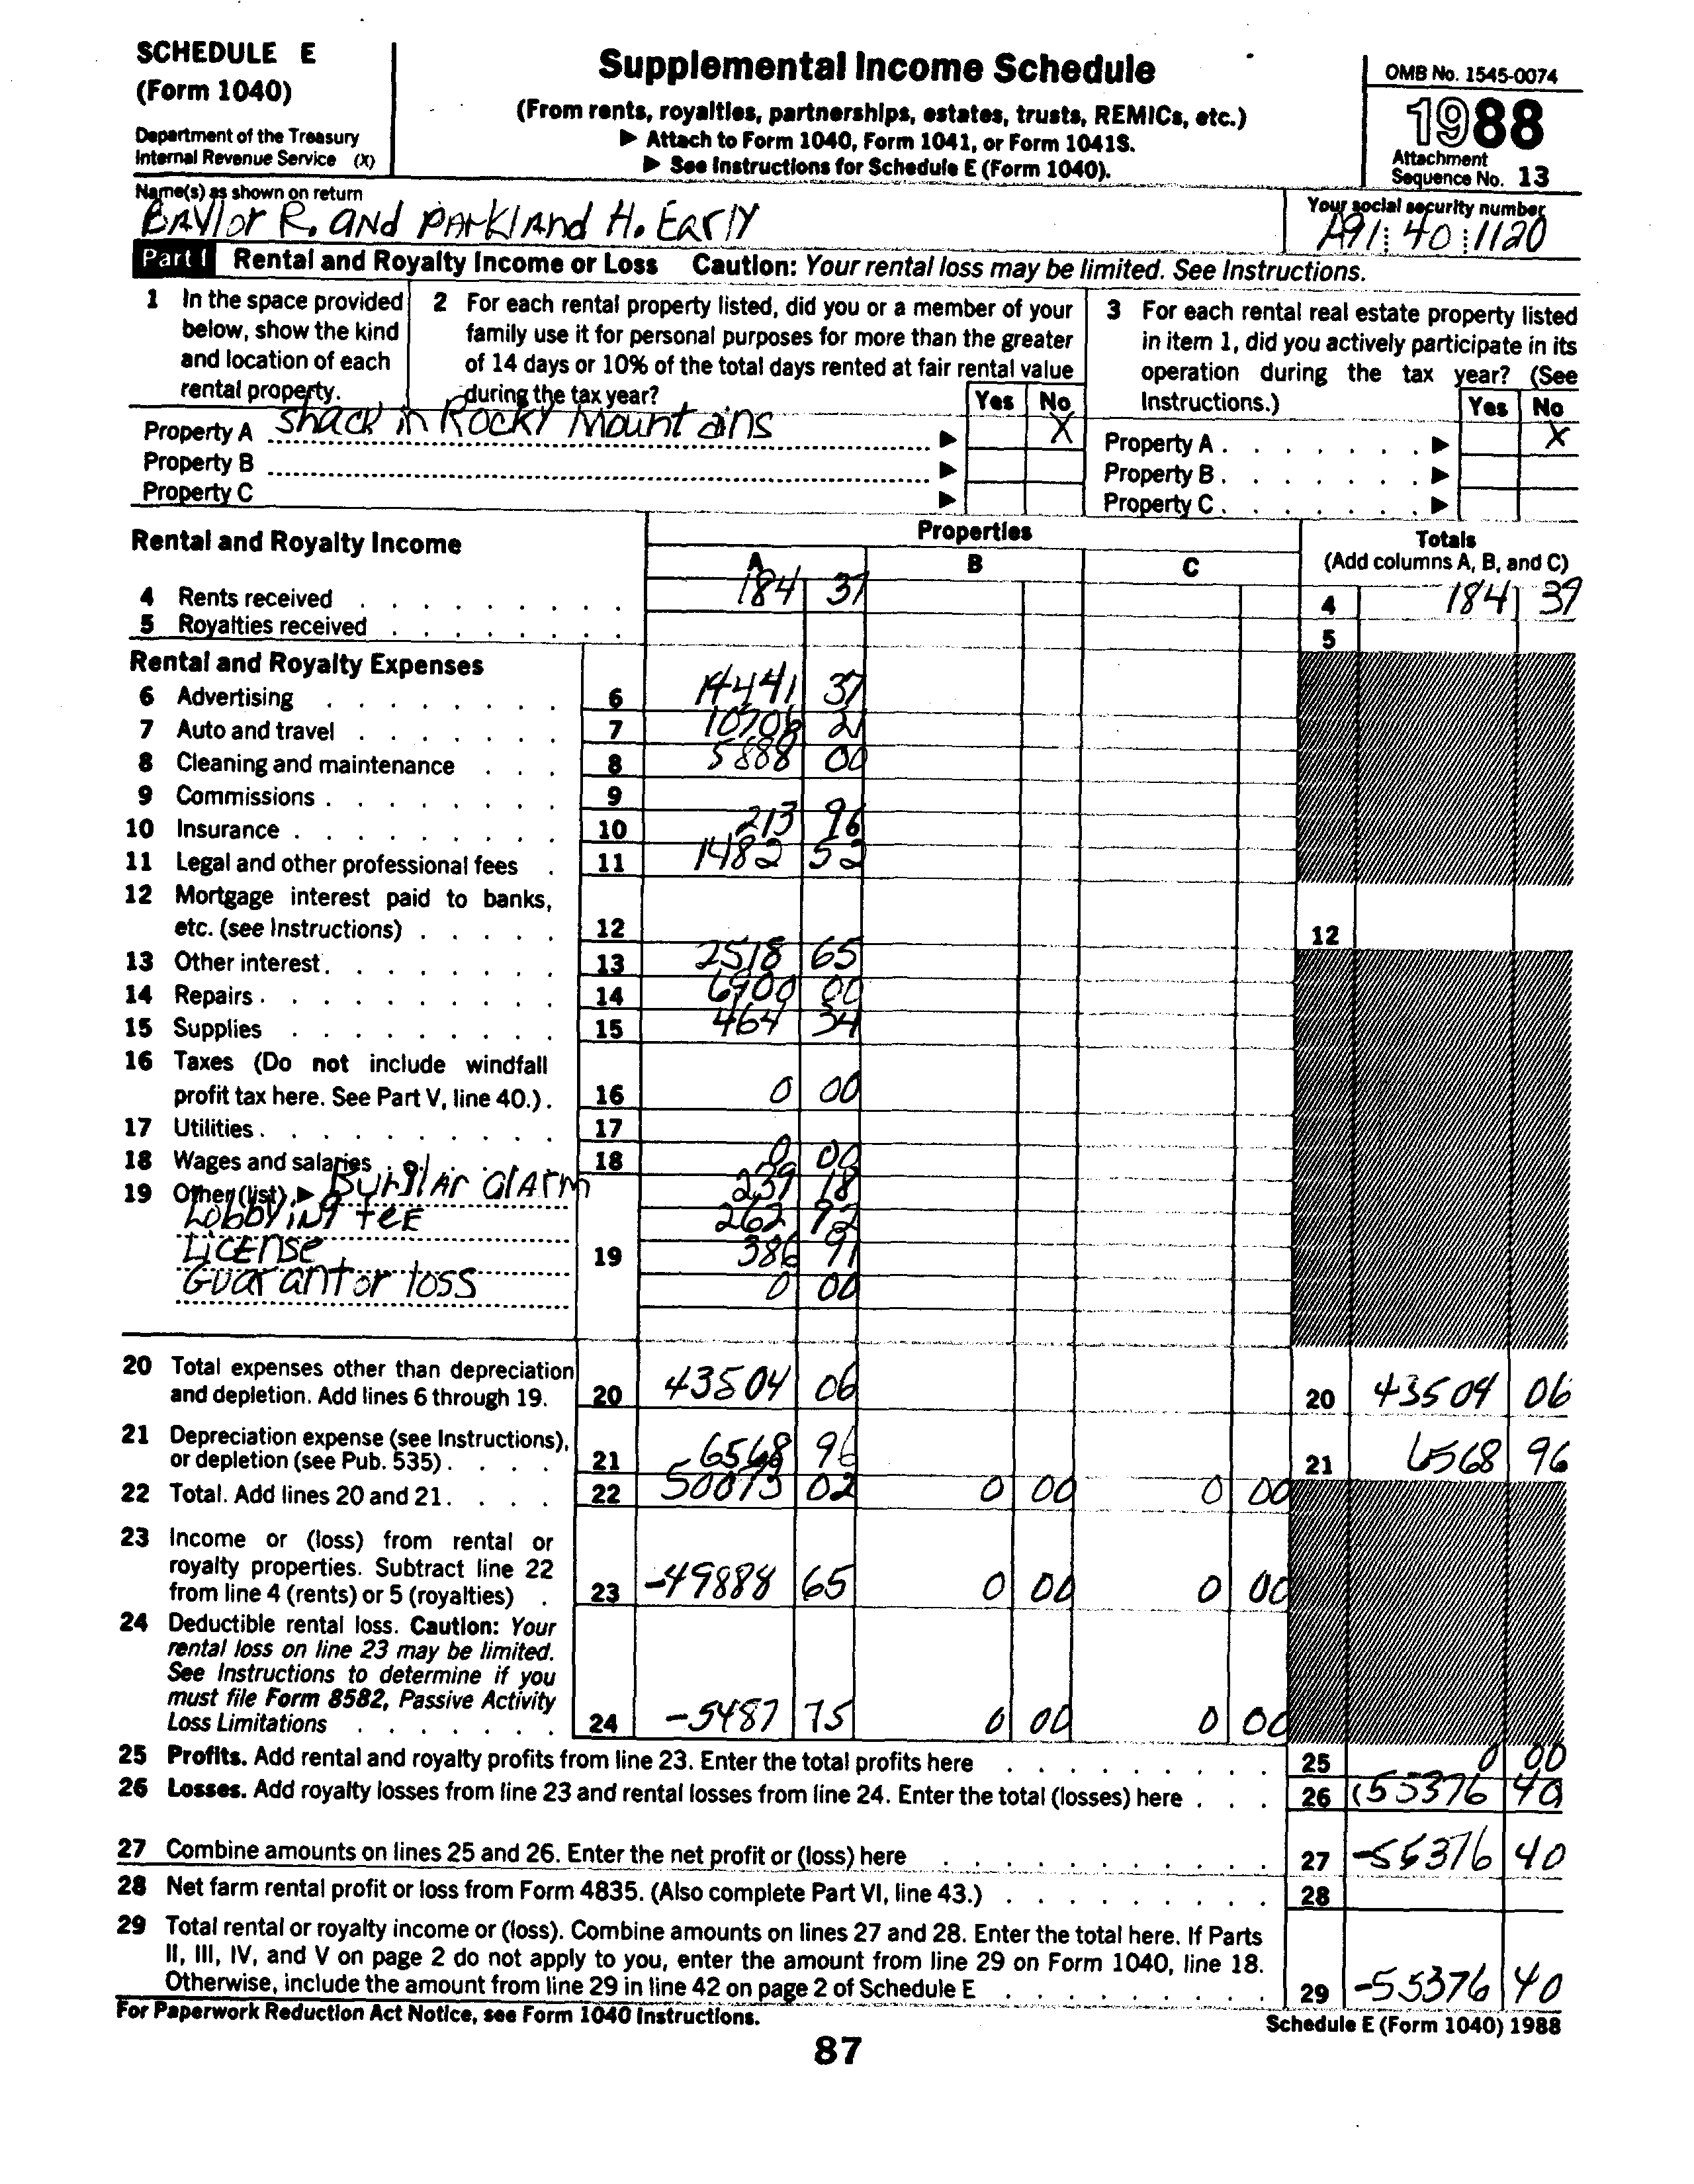 SCHEDULE E
(Form 1040)
Department of the Treasury
Internal Revenue Service (X)
Supplemental Income Schedule
(From rents, royalties, partnerships, estates, trusts, REMICs, etc.)
▶ Attach to Form 1040, Form 1041, or Form 1041S.
▶ See Instructions for Schedule E (Form 1040).
OMB No. 1545-0074
1988
Attachment
Sequence No. 13
Name(s) as shown on return
BAYlor R. AND PArklAnd H. EArlY
Your social security number
A91 40 1120
Part I Rental and Royalty Income or Loss Caution: Your rental loss may be limited. See Instructions.
1 In the space provided
below, show the kind
and location of each
rental property.
2 For each rental property listed, did you or a member of your
family use it for personal purposes for more than the greater
of 14 days or 10% of the total days rented at fair rental value
during the tax year?
Yes No
3 For each rental real estate property listed
in item 1, did you actively participate in its
operation during the tax year? (See
Instructions.)
Yes No
Property A shack in Rocky Mountains ▶ X Property A ▶ X
Property B ▶ Property B ▶
Property C ▶ Property C ▶
Rental and Royalty Income
Properties
A B C
Totals
(Add columns A, B, and C)
4 Rents received 184 37 4 184 37
5 Royalties received 5
Rental and Royalty Expenses
6 Advertising 6 14441 37
7 Auto and travel 7 10706 21
8 Cleaning and maintenance 8 5888 00
9 Commissions 9
10 Insurance 10 213 96
11 Legal and other professional fees 11 1482 52
12 Mortgage interest paid to banks,
etc. (see Instructions) 12 12
13 Other interest 13 2518 65
14 Repairs 14 6900 00
15 Supplies 15 464 34
16 Taxes (Do not include windfall
profit tax here. See Part V, line 40.) 16 0 00
17 Utilities 17
18 Wages and salaries 18 0 00
19 Other (list) ▶ Burglar alarm 239 18
Lobbying fee 262 92
License 19 386 91
Guarantor loss 0 00
20 Total expenses other than depreciation
and depletion. Add lines 6 through 19. 20 43504 06 20 43504 06
21 Depreciation expense (see Instructions),
or depletion (see Pub. 535) 21 6568 96 21 6568 96
22 Total. Add lines 20 and 21. 22 50073 02 0 00 0 00
23 Income or (loss) from rental or
royalty properties. Subtract line 22
from line 4 (rents) or 5 (royalties) 23 -49888 65 0 00 0 00
24 Deductible rental loss. Caution: Your
rental loss on line 23 may be limited.
See Instructions to determine if you
must file Form 8582, Passive Activity
Loss Limitations 24 -5487 75 0 00 0 00
25 Profits. Add rental and royalty profits from line 23. Enter the total profits here 25 0 00
26 Losses. Add royalty losses from line 23 and rental losses from line 24. Enter the total (losses) here 26 (55376 40
27 Combine amounts on lines 25 and 26. Enter the net profit or (loss) here 27 -55376 40
28 Net farm rental profit or loss from Form 4835. (Also complete Part VI, line 43.) 28
29 Total rental or royalty income or (loss). Combine amounts on lines 27 and 28. Enter the total here. If Parts
II, III, IV, and V on page 2 do not apply to you, enter the amount from line 29 on Form 1040, line 18.
Otherwise, include the amount from line 29 in line 42 on page 2 of Schedule E 29 -55376 40
For Paperwork Reduction Act Notice, see Form 1040 Instructions.
Schedule E (Form 1040) 1988
87